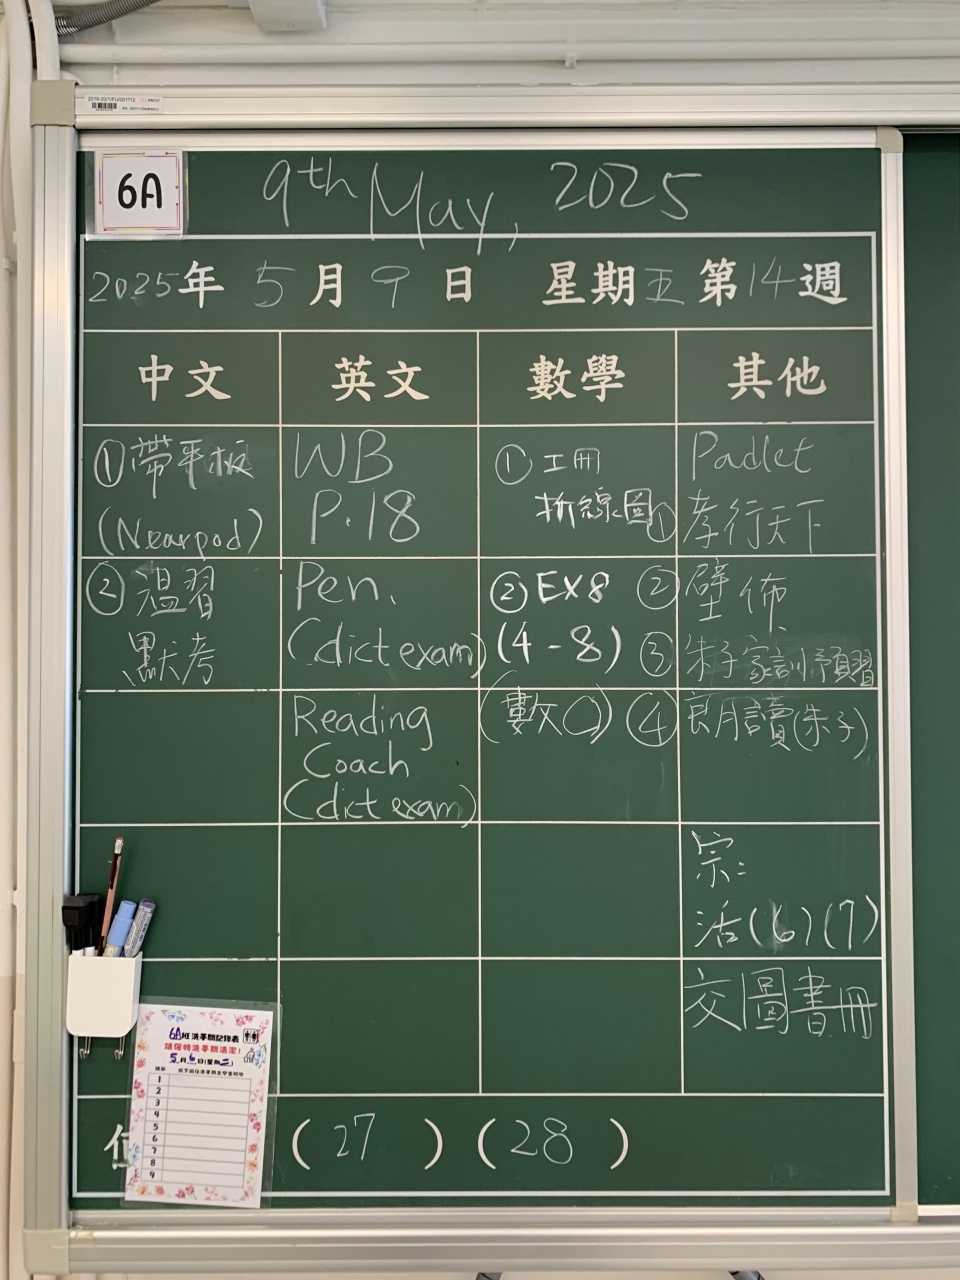 6A
9th May, 2025
2025年 5月9日 星期五 第14週
中文 英文 數學 其他
①帶平板
(Nearpod)
②溫習
默考
WB
P.18
Pen.
(dict exam)
Reading
Coach
(dict exam)
① 工冊
折線圖
② EX8
(4-8)
(數又〇)
Padlet
①孝行天下
②壁佈
③朱子家訓預習
④朗讀(朱子)
宗:
活(6)(7)
交圖書冊
(27) (28)
6A班洗手間記錄表
請保持洗手間清潔!
5月6日(星期二)
1
2
3
4
5
6
7
8
9